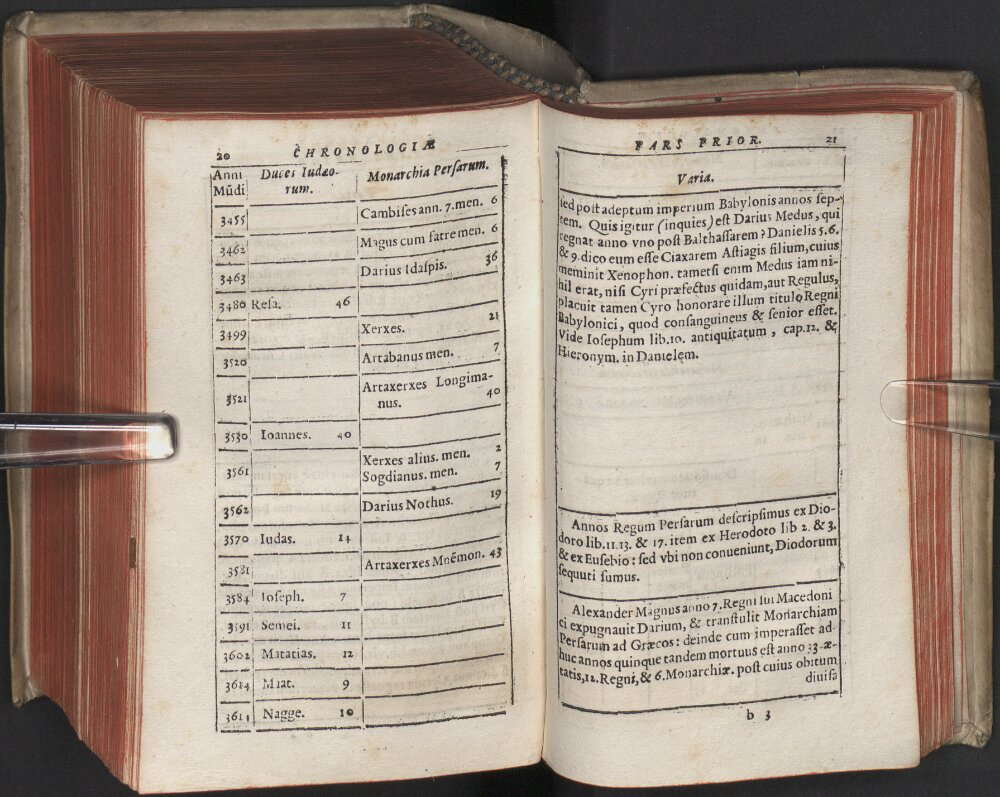 20 CHRONOLOGIÆ
Anni Duces Iudæo- Monarchia Persarum.
Mūdi rum.
3455 Cambises ann. 7. men. 6
3462 Magus cum fatre men. 6
3463 Darius Idaspis. 36
3480 Resa. 46
3499 Xerxes. 21
3520 Artabanus men. 7
3521 Artaxerxes Longima-
nus. 40
3530 Ioannes. 40
3561 Xerxes alius. men. 2
Sogdianus. men. 7
3562 Darius Nothus. 19
3570 Iudas. 14
3581 Artaxerxes Mnēmon. 43
3584 Ioseph. 7
3591 Semei. 11
3602 Matatias. 12
Maat. 9
3614 Nagge. 10
PARS PRIOR. 21
Varia.
sed post adeptum imperium Babylonis annos sep-
tem. Quis igitur (inquies) est Darius Medus, qui
regnat anno vno post Balthassarem? Danielis 5. 6.
& 9. dico eum esse Ciaxarem Astiagis filium, cuius
meminit Xenophon. tametsi enim Medus iam ni-
hil erat, nisi Cyri præfectus quidam, aut Regulus,
placuit tamen Cyro honorare illum titulo Regni
Babylonici, quod consanguineus & senior esset.
Vide Iosephum lib. 10. antiquitatum, cap. 12. &
Hieronym. in Danielem.
Annos Regum Persarum descripsimus ex Dio-
doro lib. 11. 13. & 17. item ex Herodoto lib 2. & 3.
& ex Eusebio: sed vbi non conueniunt, Diodorum
sequuti sumus.
Alexander Magnus anno 7. Regni sui Macedoni
ci expugnauit Darium, & transtulit Monarchiam
Persarum ad Græcos: deinde cum imperasset ad-
huc annos quinque tandem mortuus est anno 33. æ-
tatis, 12. Regni, & 6. Monarchiæ. post cuius obitum
diuisa
b 3